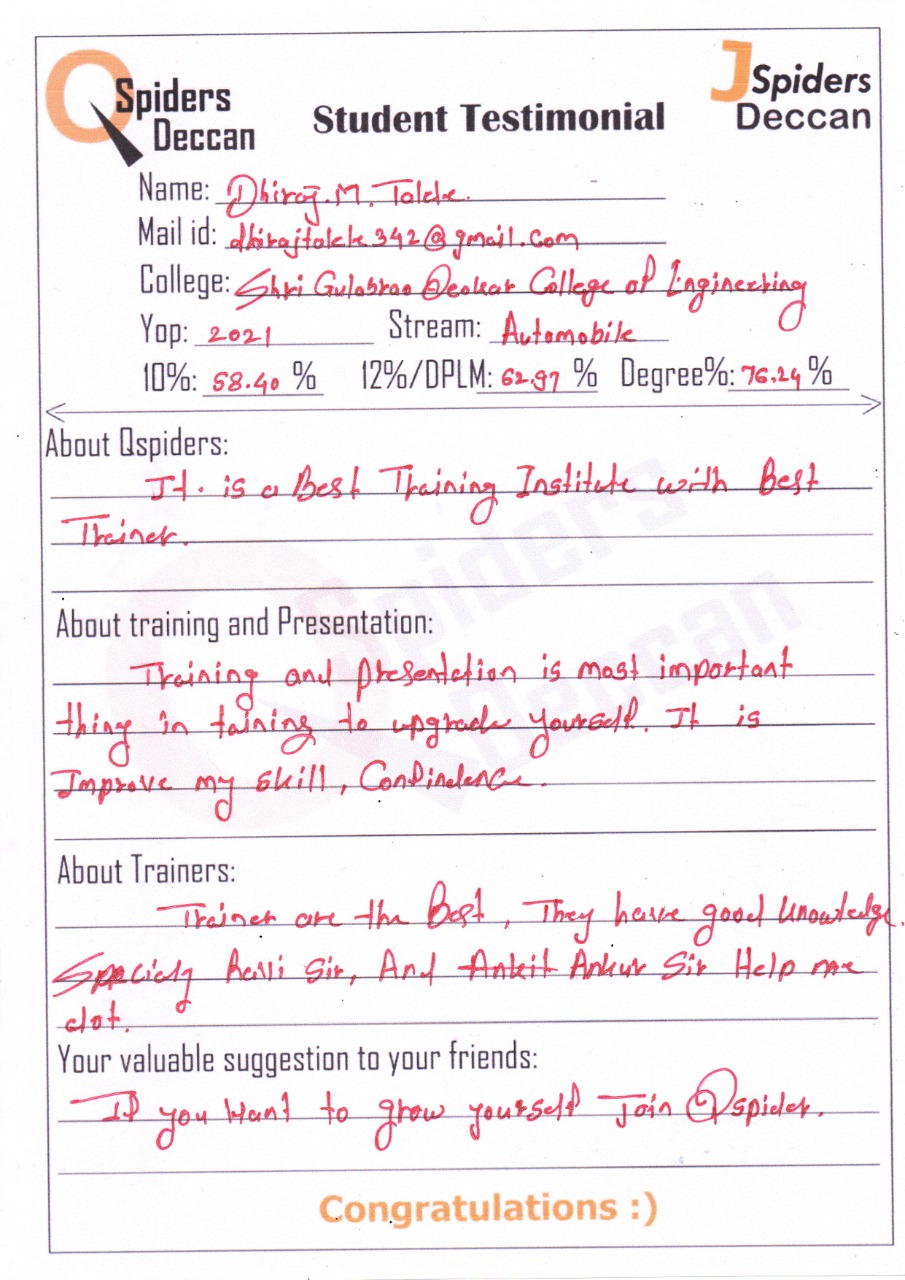 QSpiders Deccan
Student Testimonial
JSpiders Deccan
Name: Dhiraj.M. Talele.
Mail id: dhirajtalele342@gmail.com
College: Shri Gulabrao Deokar College of Engineering
Yop: 2021 Stream: Automobile
10%: 58.40 % 12%/DPLM: 62.97 % Degree%: 76.24 %
About Qspiders:
It. is a Best Training Institute with Best
Trainer.
About training and Presentation:
Training and presentation is most important
thing in taining to upgrade yourself. It is
Improve my skill, Confindence.
About Trainers:
Trainer are the Best, They have good knowledge.
Specialy Ravi Sir, And Ankit Ankur Sir Help me
alot.
Your valuable suggestion to your friends:
If you want to grow yourself Join Qspider.
Congratulations :)
Spiders
Deccan